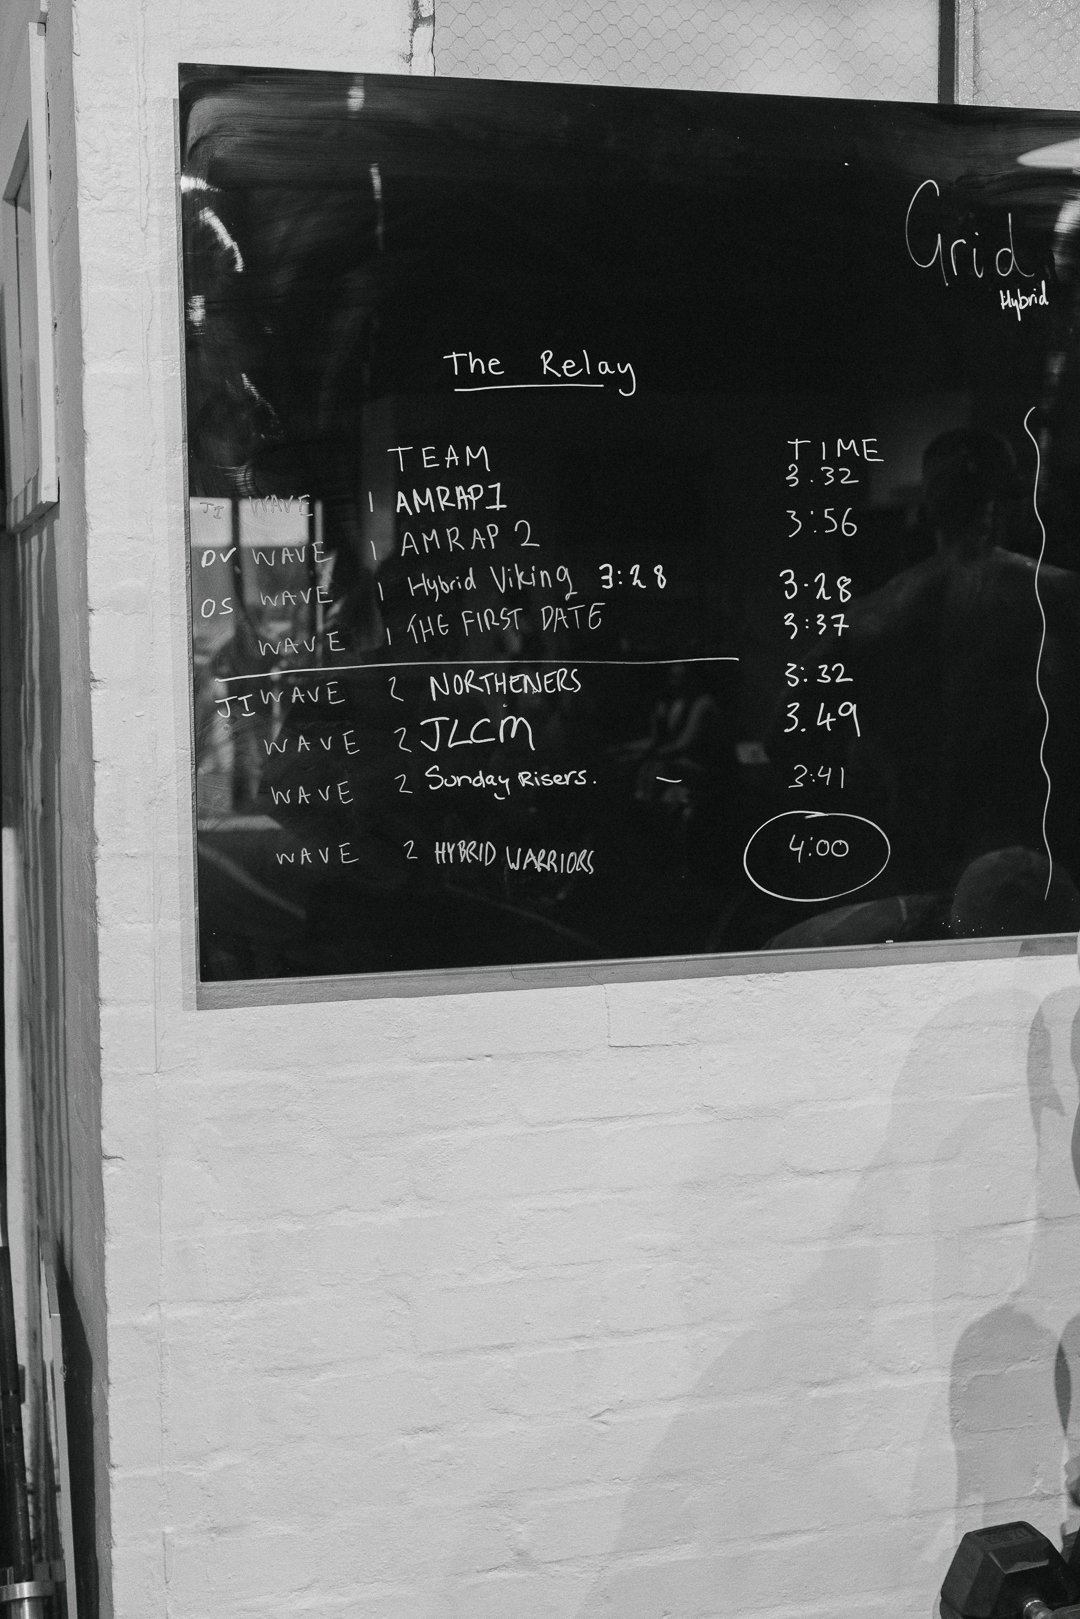 Grid
Hybrid
The Relay
TEAM TIME
JI WAVE 1 AMRAP 1 3.32
DV. WAVE 1 AMRAP 2 3:56
OS WAVE 1 Hybrid Viking 3:28 3.28
WAVE 1 THE FIRST DATE 3:37
JI WAVE 2 NORTHENERS 3:32
WAVE 2 JLCM 3.49
WAVE 2 Sunday Risers. — 3:41
WAVE 2 HYBRID WARRIORS 4:00